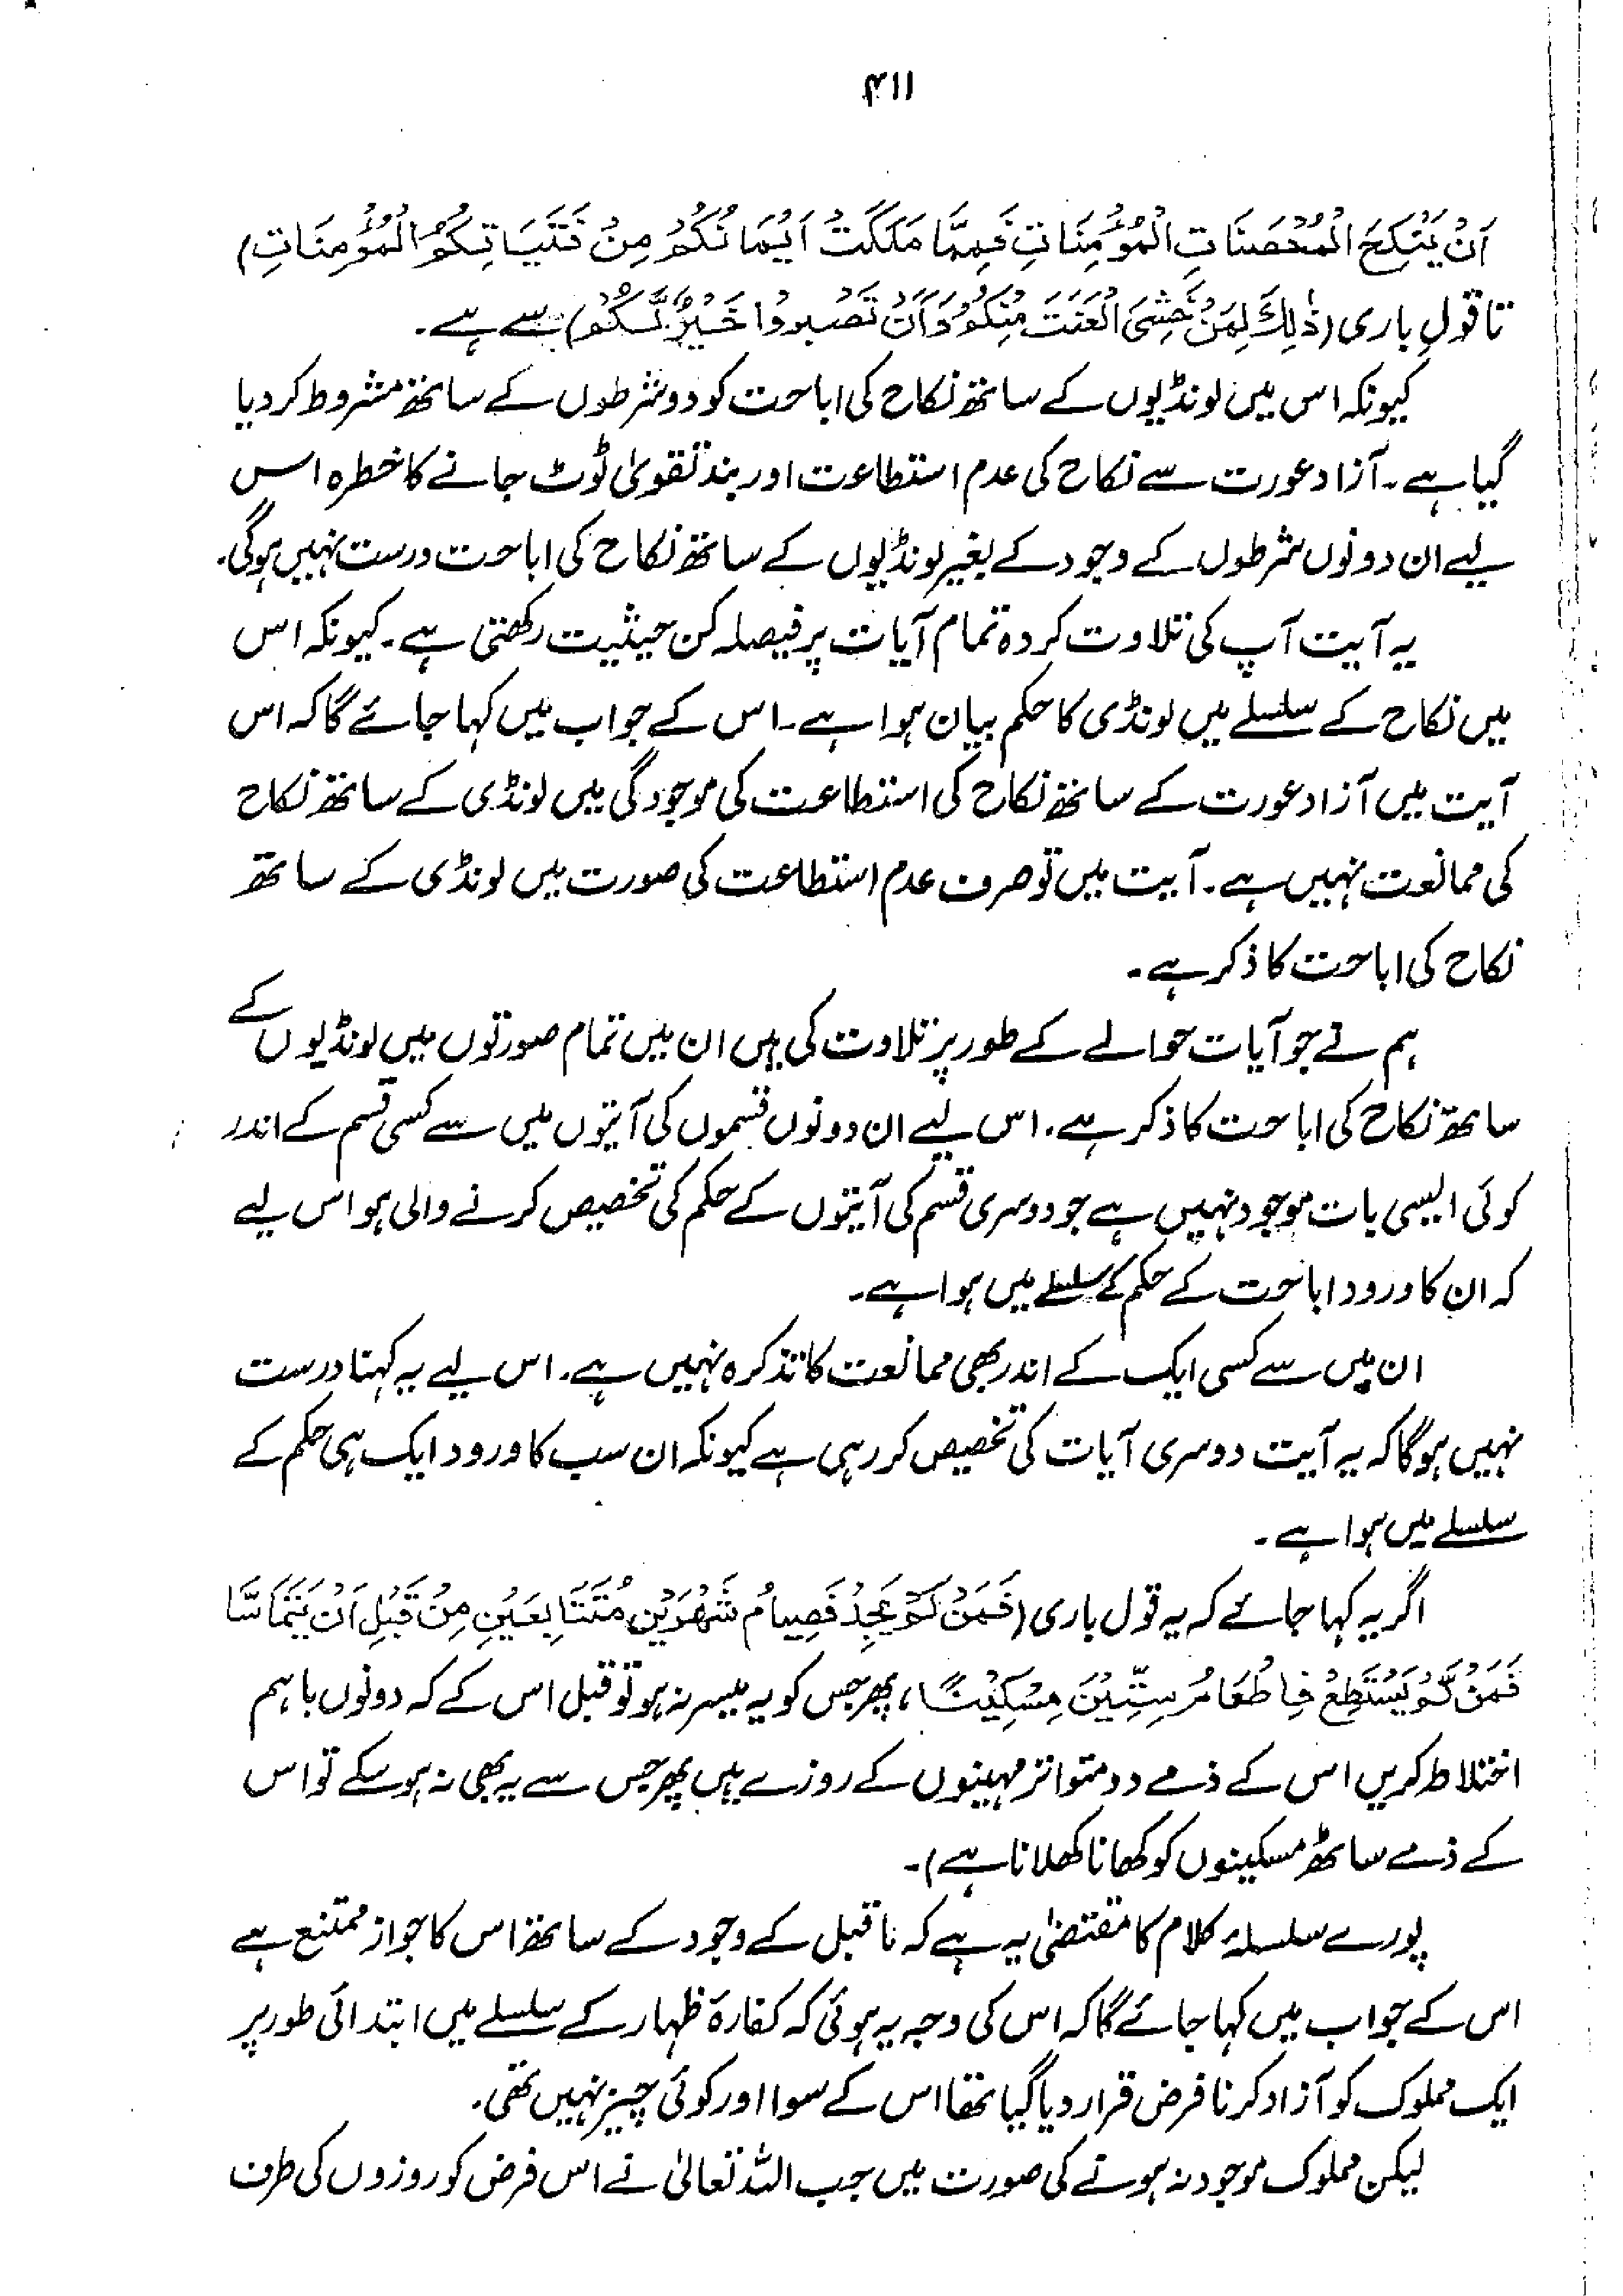 ۴۱۱
اَنْ يَّنْكِحَ الْمُحْصَنَاتِ الْمُؤْمِنَاتِ فَمِمَّا مَلَكَتْ اَيْمَانُكُمْ مِنْ فَتَيَاتِكُمُ الْمُؤْمِنَاتِ)
تا قولِ باری (ذٰلِكَ لِمَنْ خَشِىَ الْعَنَتَ مِنْكُمْ وَاَنْ تَصْبِرُوْا خَيْرٌ لَّكُمْ) سے ہے۔
کیونکہ اس میں لونڈیوں کے ساتھ نکاح کی اباحت کو دو شرطوں کے ساتھ مشروط کر دیا
گیا ہے۔ آزاد عورت سے نکاح کی عدم استطاعت اور بند تقویٰ ٹوٹ جانے کا خطرہ اس
لیے ان دونوں شرطوں کے وجود کے بغیر لونڈیوں کے ساتھ نکاح کی اباحت درست نہیں ہوگی۔
یہ آیت آپ کی تلاوت کردہ تمام آیات پر فیصلہ کن حیثیت رکھتی ہے۔ کیونکہ اس
میں نکاح کے سلسلے میں لونڈی کا حکم بیان ہوا ہے۔ اس کے جواب میں کہا جائے گا کہ اس
آیت میں آزاد عورت کے ساتھ نکاح کی استطاعت کی موجودگی میں لونڈی کے ساتھ نکاح
کی ممانعت نہیں ہے۔ آیت میں تو صرف عدم استطاعت کی صورت میں لونڈی کے ساتھ
نکاح کی اباحت کا ذکر ہے۔
ہم نے جو آیات حوالے کے طور پر تلاوت کی ہیں ان میں تمام صورتوں میں لونڈیوں کے
ساتھ نکاح کی اباحت کا ذکر ہے۔ اس لیے ان دونوں قسموں کی آیتوں میں سے کسی قسم کے اندر
کوئی ایسی بات موجود نہیں ہے جو دوسری قسم کی آیتوں کے حکم کی تخصیص کرنے والی ہو اس لیے
کہ ان کا ورود اباحت کے حکم کے سلسلے میں ہوا ہے۔
ان میں سے کسی ایک کے اندر بھی ممانعت کا تذکرہ نہیں ہے۔ اس لیے یہ کہنا درست
نہیں ہوگا کہ یہ آیت دوسری آیات کی تخصیص کر رہی ہے کیونکہ ان سب کا ورود ایک ہی حکم کے
سلسلے میں ہوا ہے۔
اگر یہ کہا جائے کہ یہ قول باری (فَمَنْ لَمْ يَجِدْ فَصِيَامُ شَهْرَيْنِ مُتَتَابِعَيْنِ مِنْ قَبْلِ اَنْ يَتَمَاسَّا
فَمَنْ لَّمْ يَسْتَطِعْ فَاِطْعَامُ سِتِّيْنَ مِسْكِيْنًا ، پھر جس کو یہ میسر نہ ہو تو قبل اس کے کہ دونوں باہم
اختلاط کریں اس کے ذمے دو متواتر مہینوں کے روزے ہیں پھر جس سے یہ بھی نہ ہو سکے تو اس
کے ذمے ساٹھ مسکینوں کو کھانا کھلانا ہے)۔
پورے سلسلۂ کلام کا مقتضیٰ یہ ہے کہ ناقبل کے وجود کے ساتھ اس کا جواز ممتنع ہے
اس کے جواب میں کہا جائے گا کہ اس کی وجہ یہ ہوئی کہ کفارۂ ظہار کے سلسلے میں ابتدائی طور پر
ایک مملوک کو آزاد کرنا فرض قرار دیا گیا تھا اس کے سوا اور کوئی چیز نہیں تھی۔
لیکن مملوک موجود نہ ہونے کی صورت میں جب اللہ تعالیٰ نے اس فرض کو روزوں کی طرف